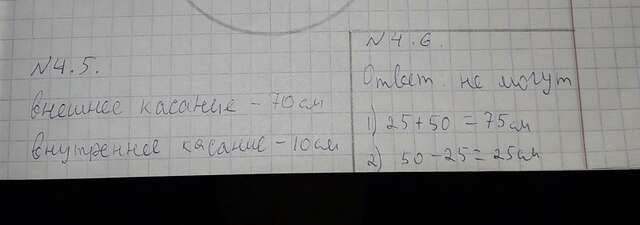 N4.5.
внешнее касание - 70см
внутреннее касание - 10см
N4.6.
Ответ. не могут
1) 25+50 = 75см
2) 50-25 = 25см